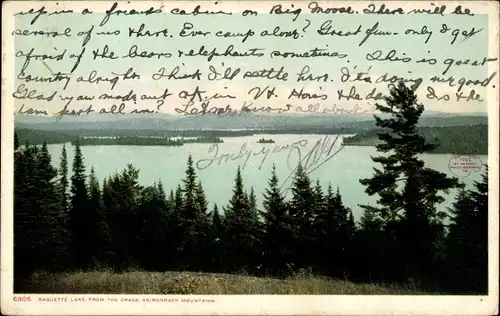 up in a friend's cabin on Big Moose. There will be
several of us there. Ever camp alone? Great fun - only I get
afraid of the bears & elephants sometimes. This is great
country alright. I think I'll settle here. I'ts doing me good.
Glad you made out ok in Vt. How's the leader & is the
team part all in? Let me know all about
Only
6905 RAQUETTE LAKE, FROM THE CRAGS, ADIRONDACK MOUNTAINS.